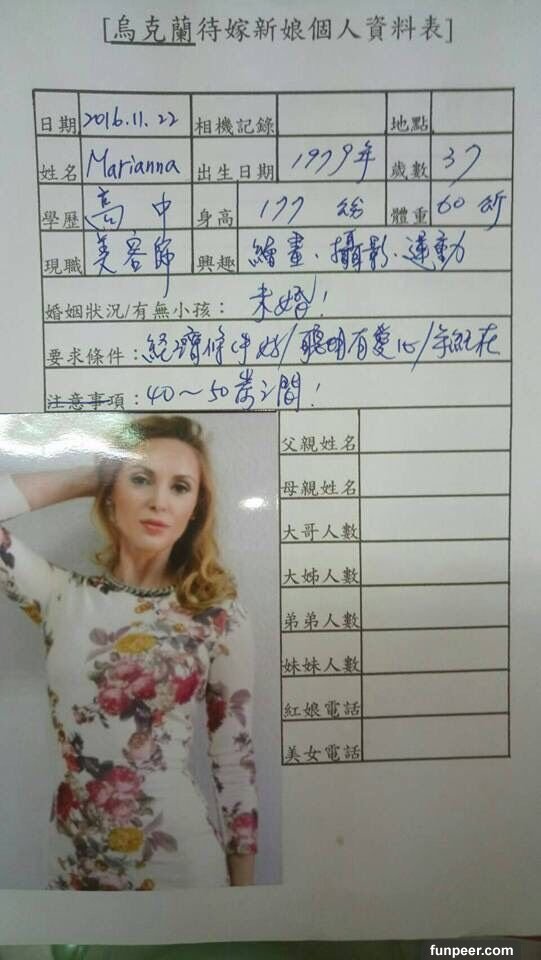 [烏克蘭待嫁新娘個人資料表]
日期 2016.11.22 相機記錄 地點
姓名 Marianna 出生日期 1979年 歲數 37
學歷 高中 身高 177 公分 體重 60 公斤
現職 美容師 興趣 繪畫、攝影、運動
婚姻狀況/有無小孩: 未婚!
要求條件: 經濟條件好/聰明有愛心/年紀在
注意事項: 40~50歲之間!
父親姓名
母親姓名
大哥人數
大姊人數
弟弟人數
妹妹人數
紅娘電話
美女電話
funpeer.com